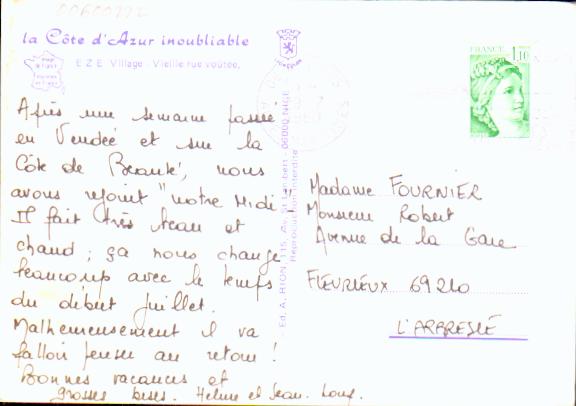 la Côte d'Azur inoubliable
EZE Village - Vieille rue voûtée.
FRANCE
1,10
Après une semaine passée
en Vendée et sur la
Côte de Beauté, nous
avons rejoint "notre Midi".
Il fait très beau et
chaud ; ça nous change
beaucoup avec le temps
du début Juillet.
Malheureusement il va
falloir penser au retour !
Bonnes vacances et
grosses bises. Hélène et Jean-Louis.
Ed. A. RION, 115, Av. St-Lambert - 06000 NICE
Reproduction interdite
Madame FOURNIER
Monsieur Robert
Avenue de la Gare
FLEURIEUX 69210
L'ARBRESLE